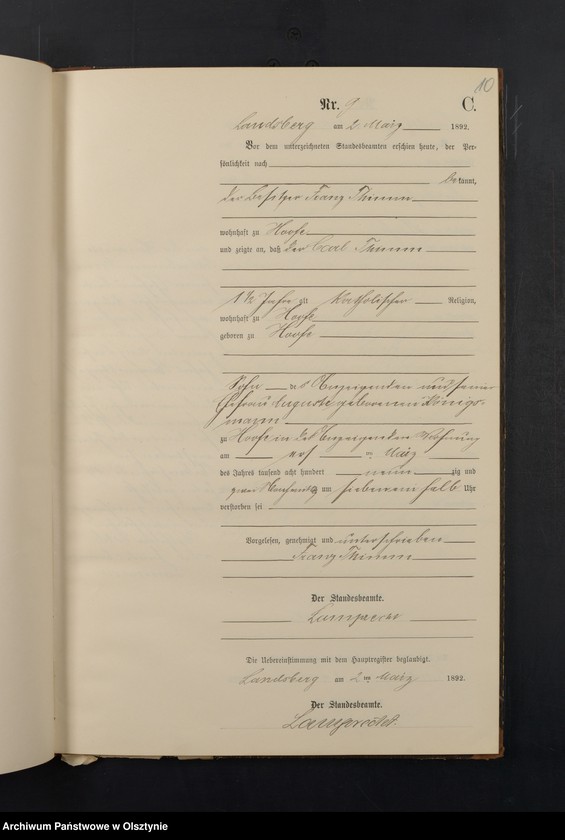 10
Nr. 9 C.
Landsberg am 2. März 1892.
Vor dem unterzeichneten Standesbeamten erschien heute, der Per-
sönlichkeit nach
bekannt,
der Besitzer Franz Thimm
wohnhaft zu Hoofe
und zeigte an, daß der Carl Thimm
1½ Jahr alt Katholischer Religion,
wohnhaft zu Hoofe
geboren zu Hoofe
Sohn des Anzeigenden und seiner
Ehefrau Auguste geborenen Königs-
mann
zu Hoofe in des Anzeigenden Wohnung
am März
des Jahres tausend acht hundert neun zig und
zwei Nachmittags um sieben ein halb Uhr
verstorben sei
Vorgelesen, genehmigt und unterschrieben
Franz Thimm
Der Standesbeamte.
Lamprecht
Die Uebereinstimmung mit dem Hauptregister beglaubigt.
Landsberg am 2ten März 1892.
Der Standesbeamte.
Lamprecht.
Archiwum Państwowe w Olsztynie